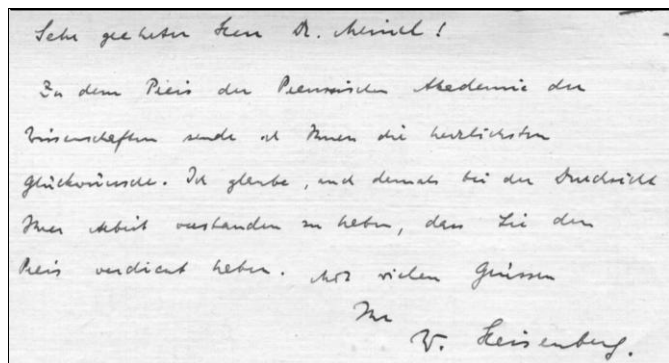 Sehr geehrter Herr Dr. Meixl!
Zu dem Preis der Preussischen Akademie der
Wissenschaften sende ich Ihnen die herzlichsten
Glückwünsche. Ich glaube, auch damals bei der Durchsicht
Ihrer Arbeit verstanden zu haben, dass Sie den
Preis verdient haben. Mit vielen Grüssen
Ihr
W. Heisenberg.